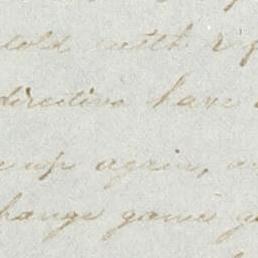 told with
directive have
up again,
change game